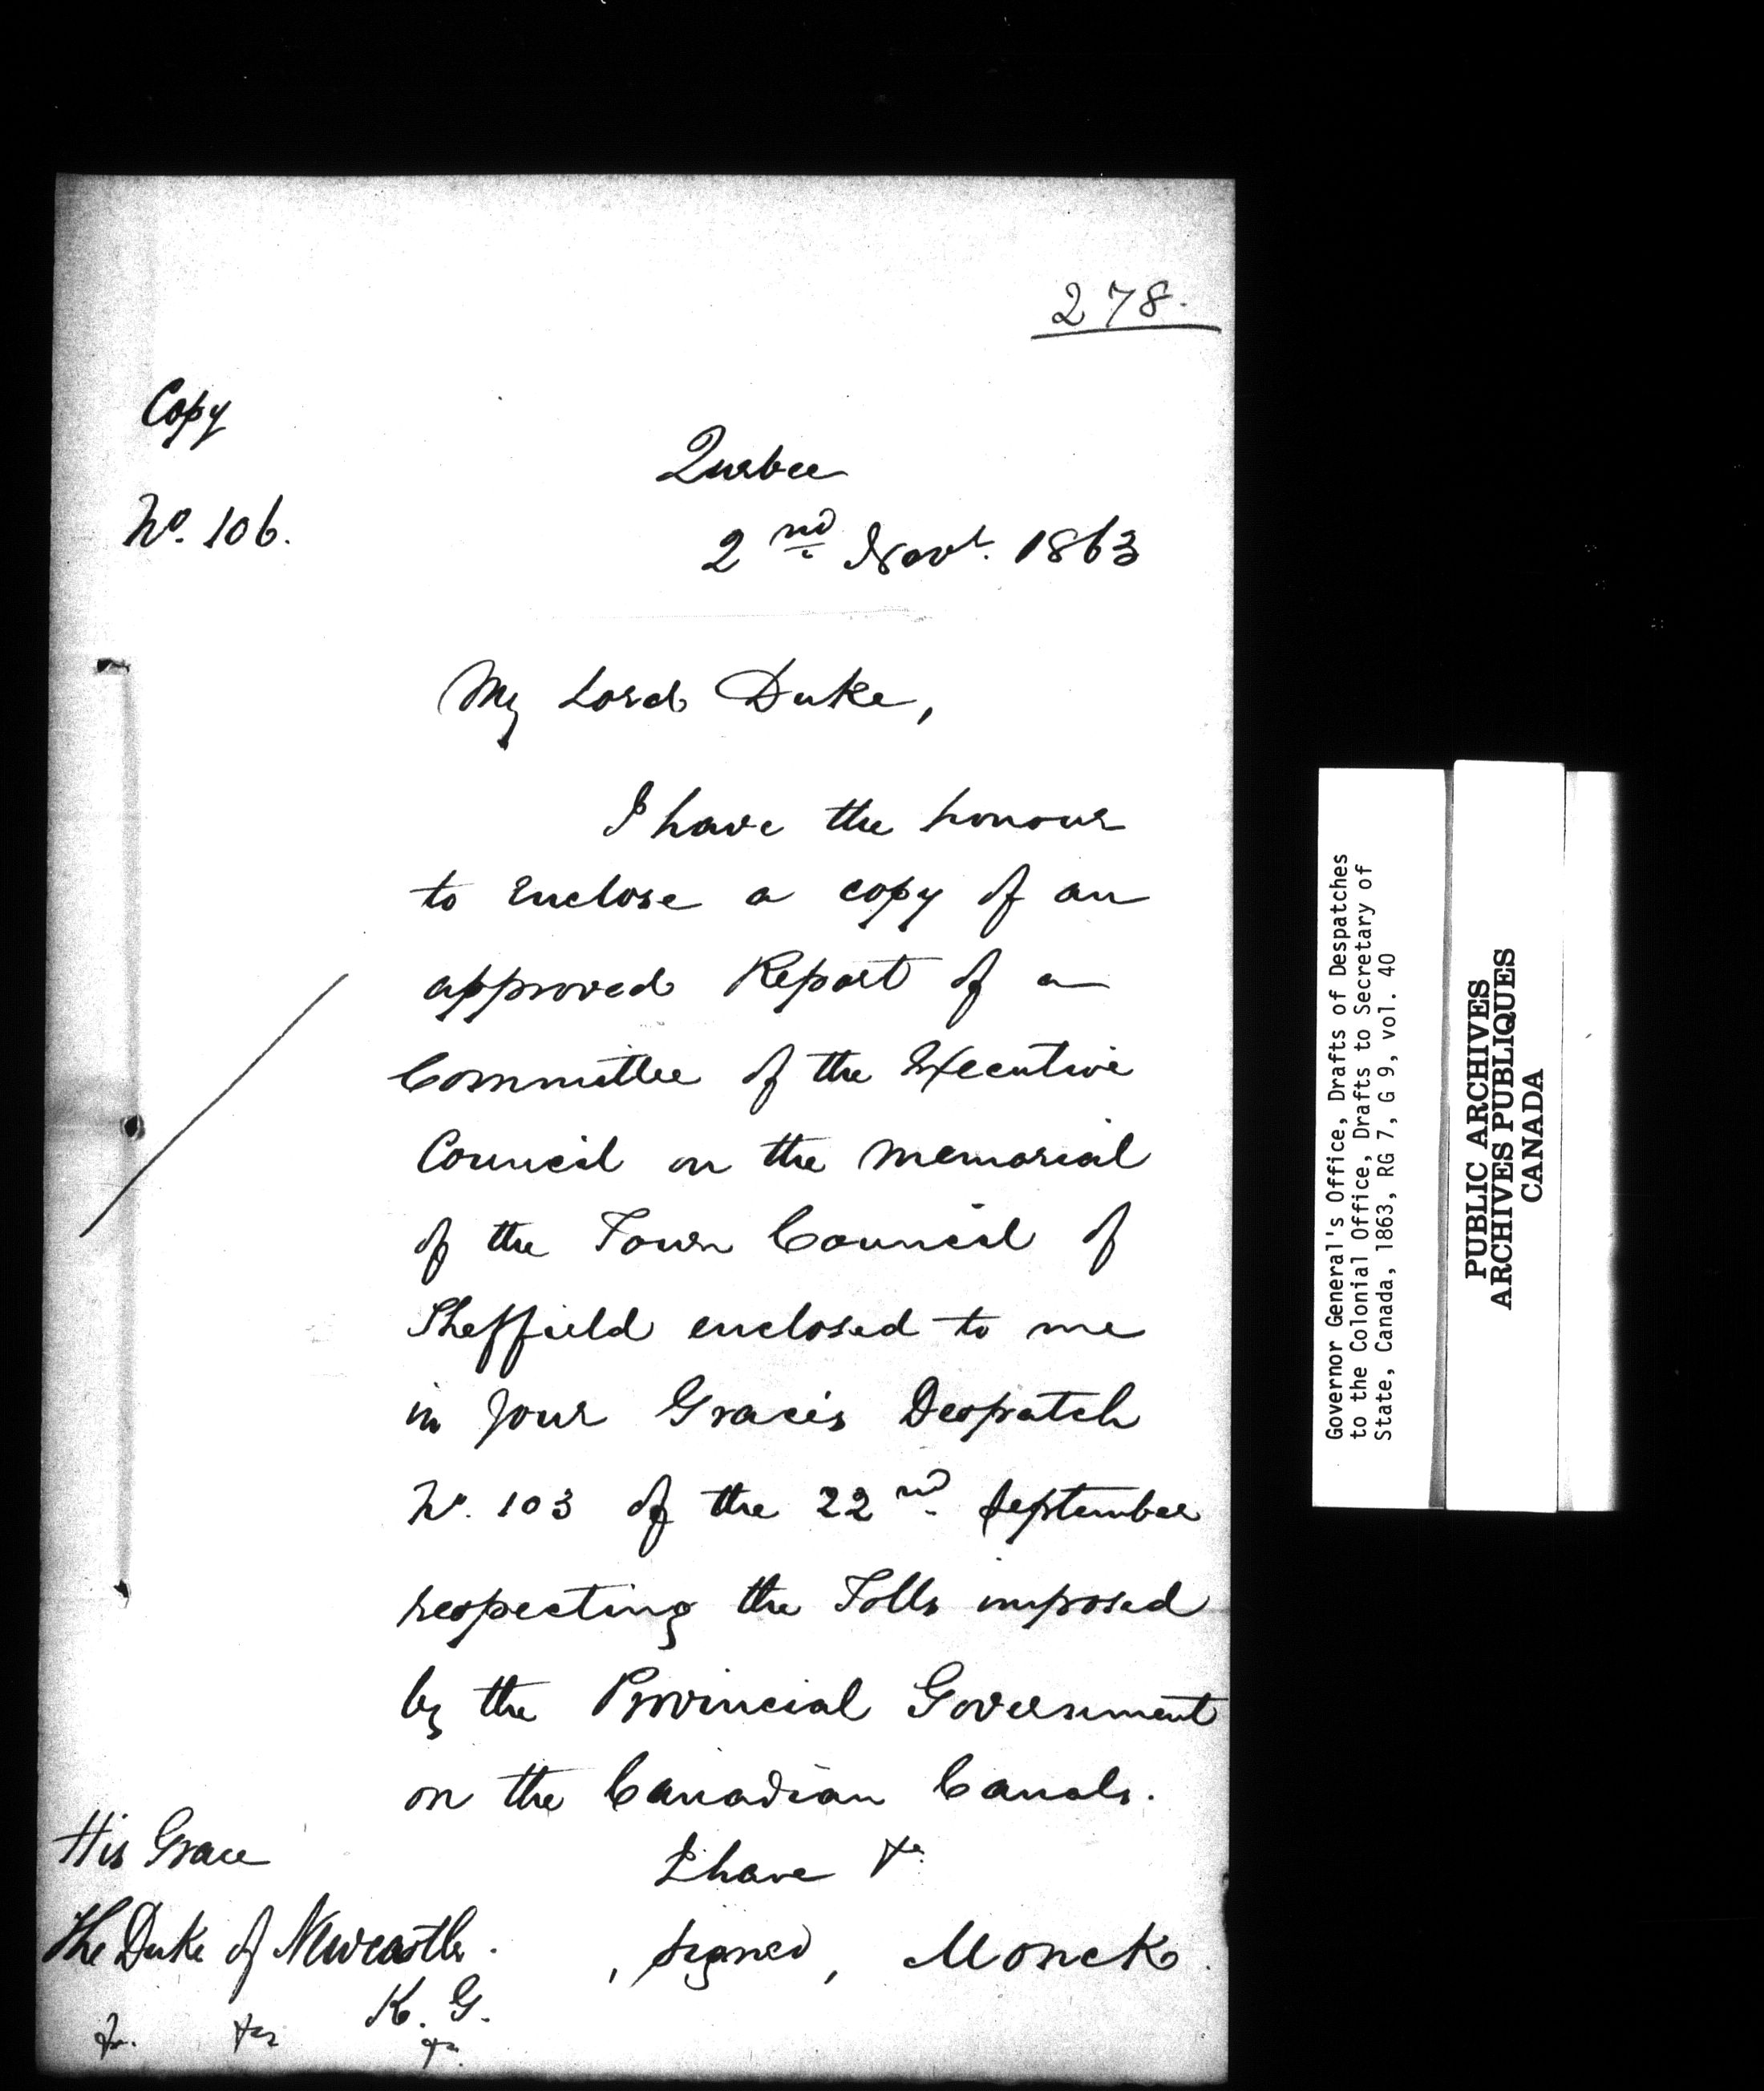 278.
Copy
No. 106.
Quebec
2nd Novr. 1863
My Lord Duke,
I have the honour
to enclose a copy of an
approved Report of a
Committee of the Executive
Council on the memorial
of the Town Council of
Sheffield enclosed to me
in Your Grace's Despatch
No. 103 of the 22nd September
respecting the Tolls imposed
by the Provincial Government
on the Canadian Canals.
I have &c
, signed, Monck.
His Grace
The Duke of Newcastle.
K. G.
&c. &c &c.
Governor General's Office, Drafts of Despatches
to the Colonial Office, Drafts to Secretary of
State, Canada, 1863, RG 7, G 9, vol. 40
PUBLIC ARCHIVES
ARCHIVES PUBLIQUES
CANADA